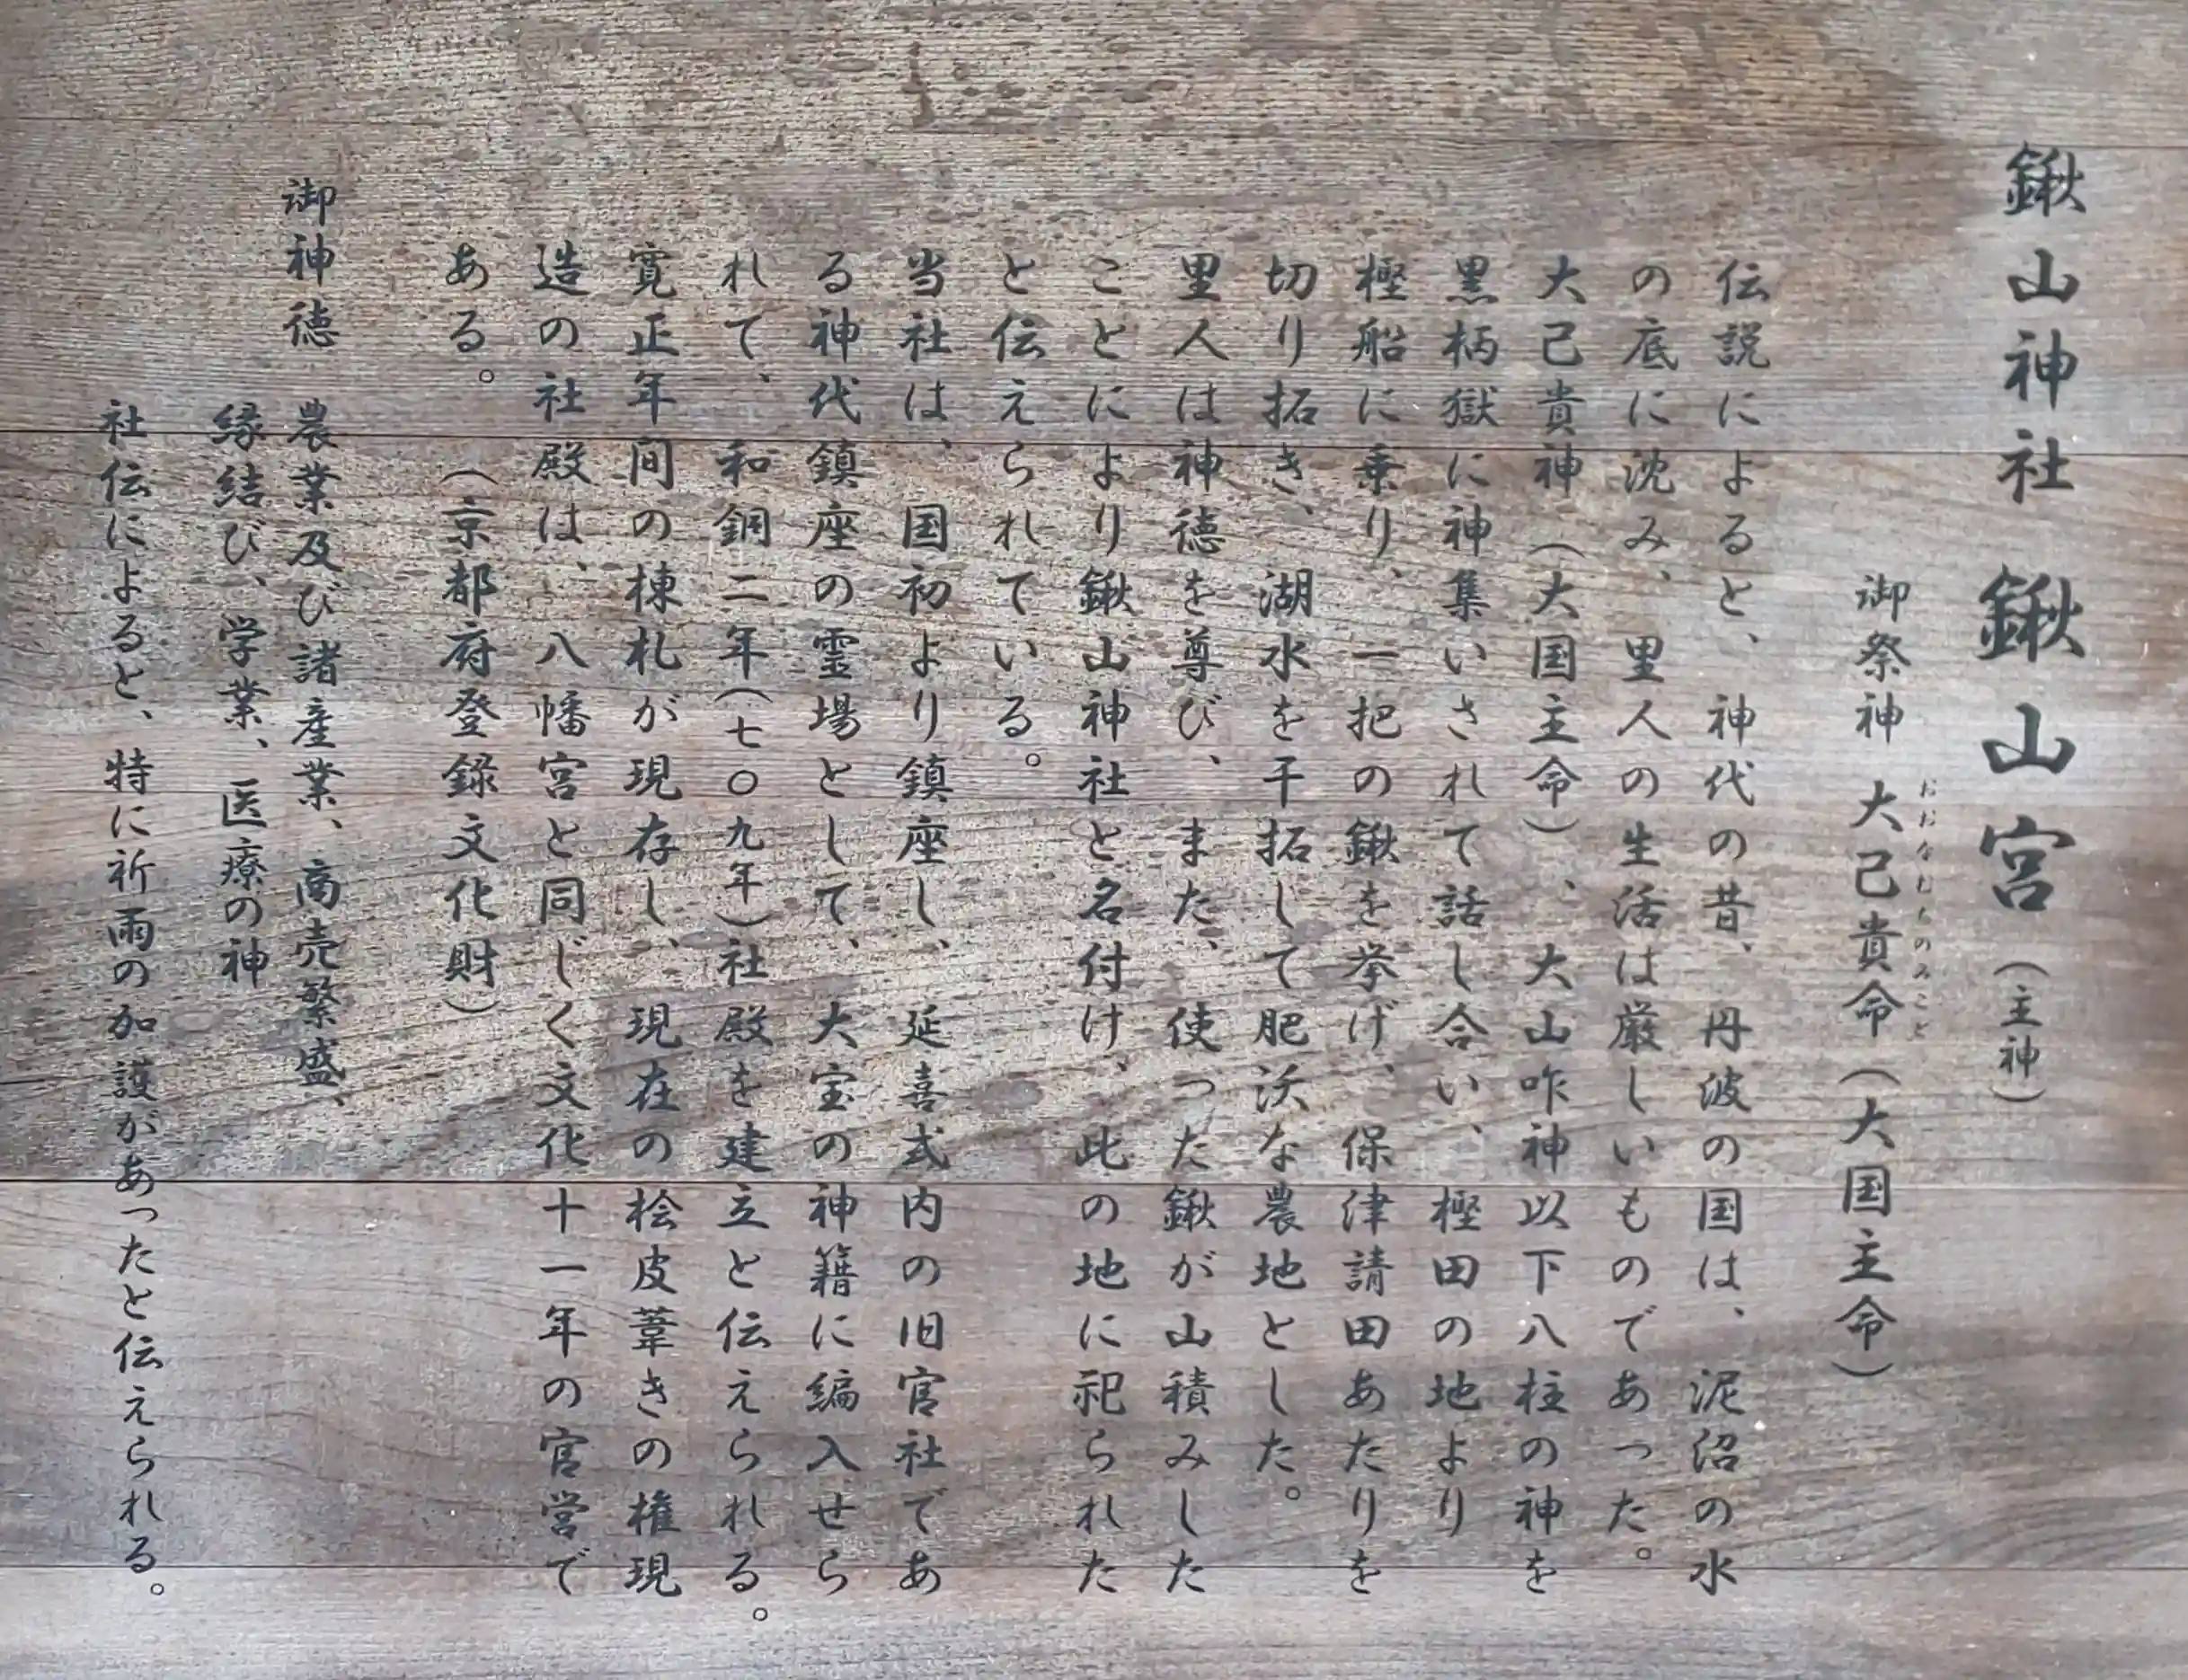 鍬山神社 鍬山宮(主神)
御祭神 大己貴命(大国主命)
おおなむちのみこと
伝説によると、神代の昔、丹波の国は、泥沼の水
の底に沈み、里人の生活は厳しいものであった。
大己貴神(大国主命)、大山咋神以下八柱の神を
黒柄獄に神集いされて話し合い、樫田の地より
樫船に乗り、一把の鍬を挙げ、保津請田あたりを
切り拓き、湖水を干拓して肥沃な農地とした。
里人は神徳を尊び、また、使った鍬が山積みした
ことにより鍬山神社と名付け、此の地に祀られた
と伝えられている。
当社は、国初より鎮座し、延喜式内の旧官社であ
る神代鎮座の霊場として、大宝の神籍に編入せら
れて、和銅二年(七〇九年)社殿を建立と伝えられる。
寛正年間の棟札が現存し、現在の桧皮葺きの権現
造の社殿は、八幡宮と同じく文化十一年の官営で
ある。(京都府登録文化財)
御神徳 農業及び諸産業、商売繁盛、
縁結び、学業、医療の神
社伝によると、特に祈雨の加護があったと伝えられる。